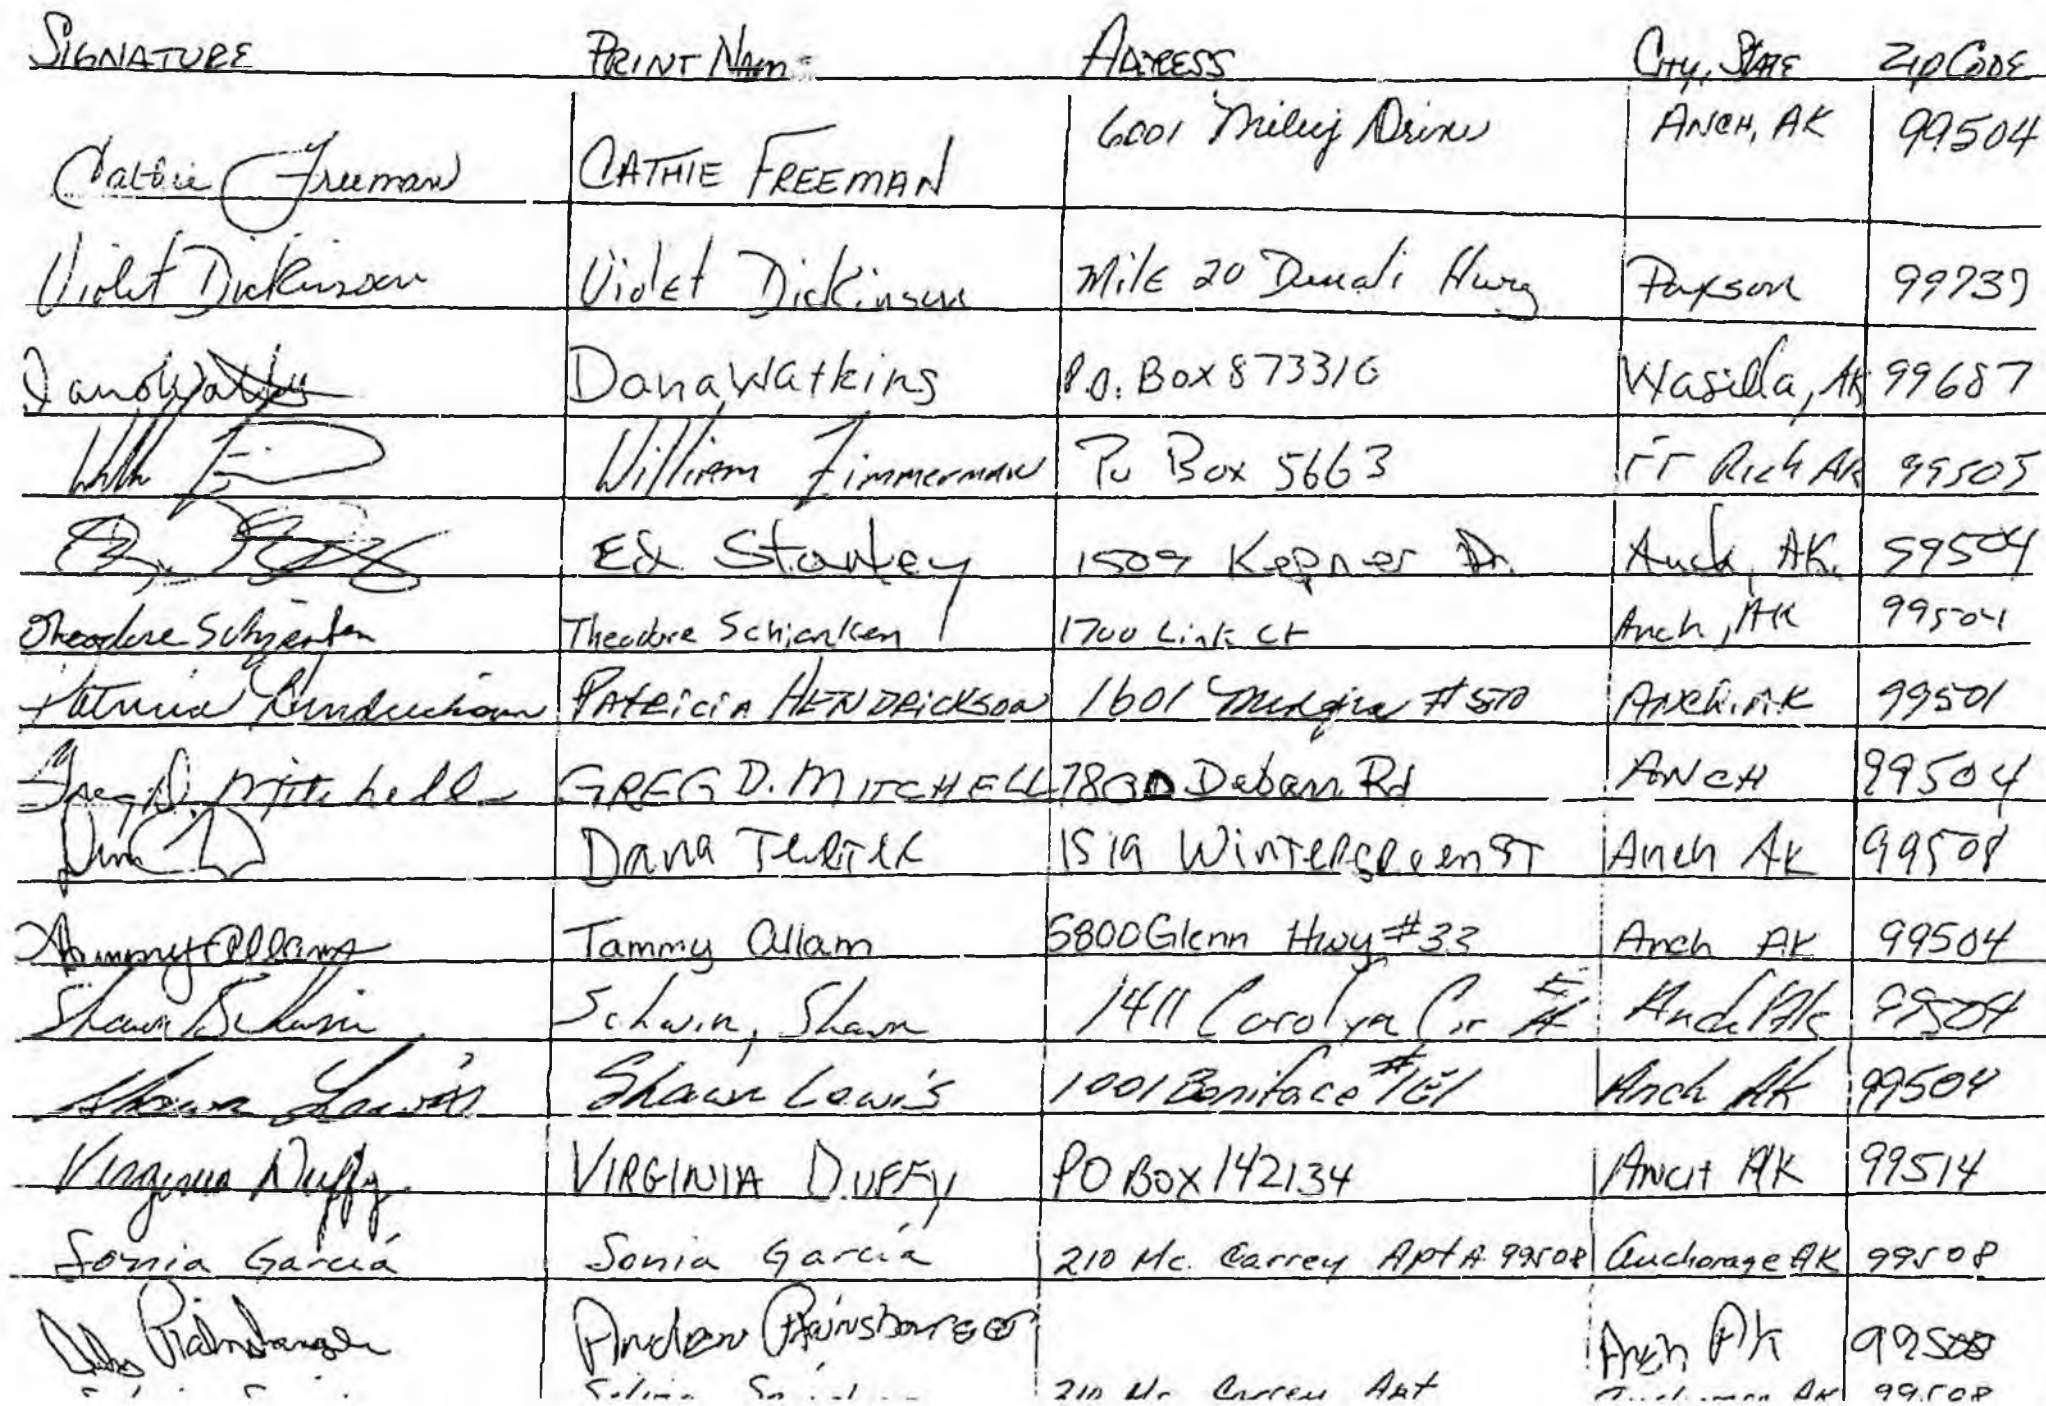 SIGNATURE PRINT NAME ADDRESS CITY, STATE ZIP CODE
Cathie Freeman CATHIE FREEMAN 6001 Drive ANCH, AK 99504
Violet Dickinson Violet Dickinson Mile 20 Denali Hwy Paxson 99737
Dana Watkins Dana Watkins P.O. Box 873310 Wasilla, AK 99687
William Zimmerman Po Box 5663 FT Rich AK 99505
Ed Stanley 1509 Kepner Dr. Anch, AK. 99504
Theodore Schierken Theodore Schierken 1700 Link ct Anch, AK 99504
Patricia Hendrickson PATRICIA HENDRICKSON 1601 #510 Anch. AK 99501
Greg D. Mitchell GREG D. MITCHELL 7800 Debarr Rd ANCH 99504
Dana 1519 Wintergreen ST Anch AK 99508
Tammy Allam Tammy Allam 5800 Glenn Hwy #33 Anch AK 99504
Shawn Schwin Schwin, Shawn 1411 Carolyn Cir Anch Ak 99504
Shawn Lewis Shawn Lewis 1001 Boniface #161 Anch AK 99504
Virginia Duffy VIRGINIA DUFFY PO BOX 142134 Anch AK 99514
Sonia García Sonia García 210 Mc. Carrey Apt A 99508 Anchorage AK 99508
Andrew Anch AK 99508
210 Mc Carrey Apt AK 99508